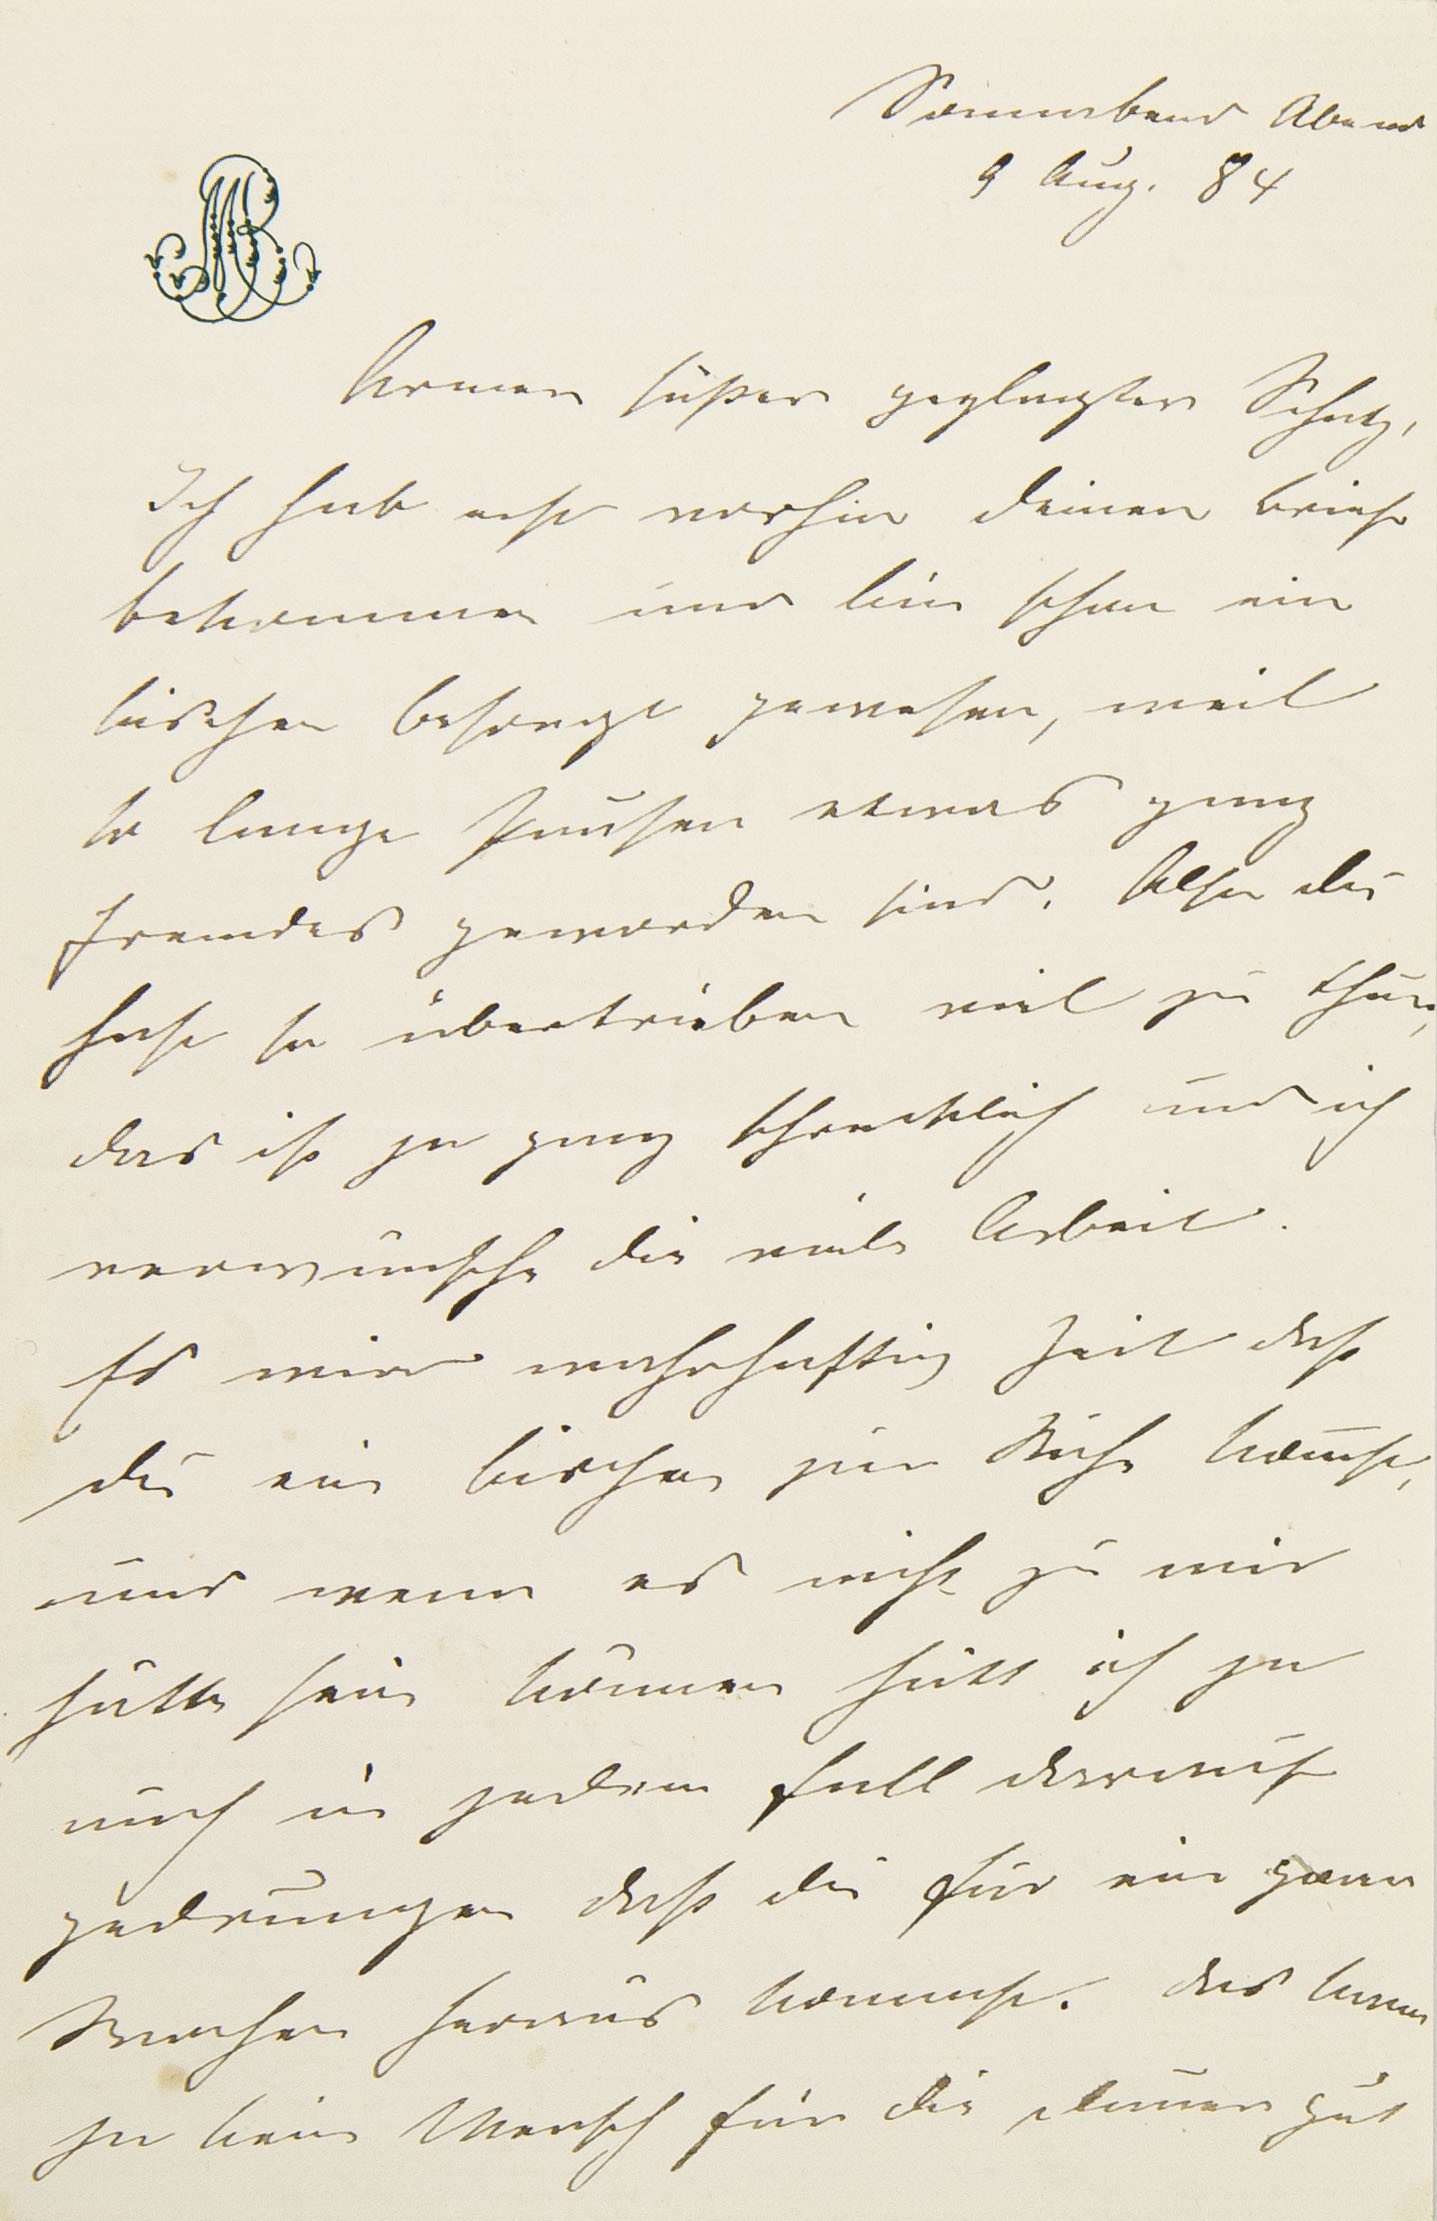 Sonnabend Abend
9 Aug. 84
MB
Armer süßer geplagter Schatz,
Ich hab erst vorhin Deinen Brief
bekommen und bin schon ein
bischen besorgt gewesen, weil
so lange Pausen etwas ganz
fremdes geworden sind. Also du
hast so übertrieben viel zu thun,
das ist ja ganz schrecklich und ich
verwünsche die viele Arbeit.
Es wird wahrhaftig Zeit daß
du ein bischen zur Ruhe kommst,
und wenn es nicht zu mir
hätte sein können hätt ich ja
auch in jedem Fall darauf
gedrungen daß du für ein paar
Wochen heraus kommst. Das kann
ja kein Mensch für die Dauer gut